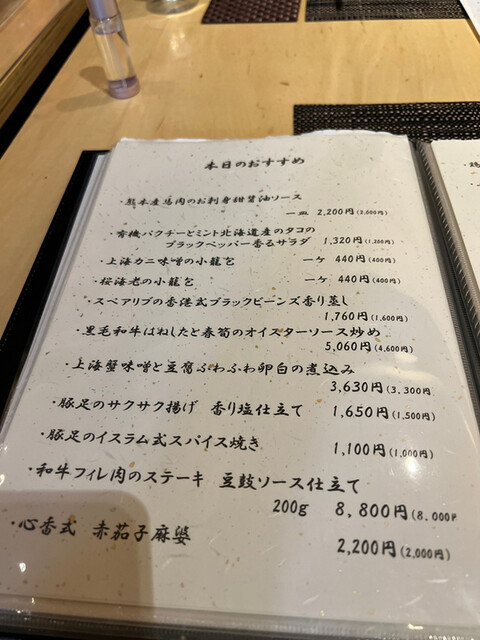 本日のおすすめ
・熊本産馬肉のお刺身甜醤油ソース
一皿 2,200円(2,000円)
・有機パクチーとミント北海道産のタコの
ブラックペッパー香るサラダ 1,320円(1,200円)
・上海カニ味噌の小籠包 一ケ 440円(400円)
・桜海老の小龍包 一ケ 440円(400円)
・スペアリブの香港式ブラックビーンズ香り蒸し
1,760円(1,600円)
・黒毛和牛はねしたと春筍のオイスターソース炒め
5,060円(4,600円)
・上海蟹味噌と豆腐ふわふわ卵白の煮込み
3,630円(3,300円
・豚足のサクサク揚げ 香り塩仕立て 1,650円(1,500円)
・豚足のイスラム式スパイス焼き
1,100円(1,000円)
・和牛フィレ肉のステーキ 豆鼓ソース仕立て
200g 8,800円(8,000円
・心香式 赤茄子麻婆
2,200円(2,000円)